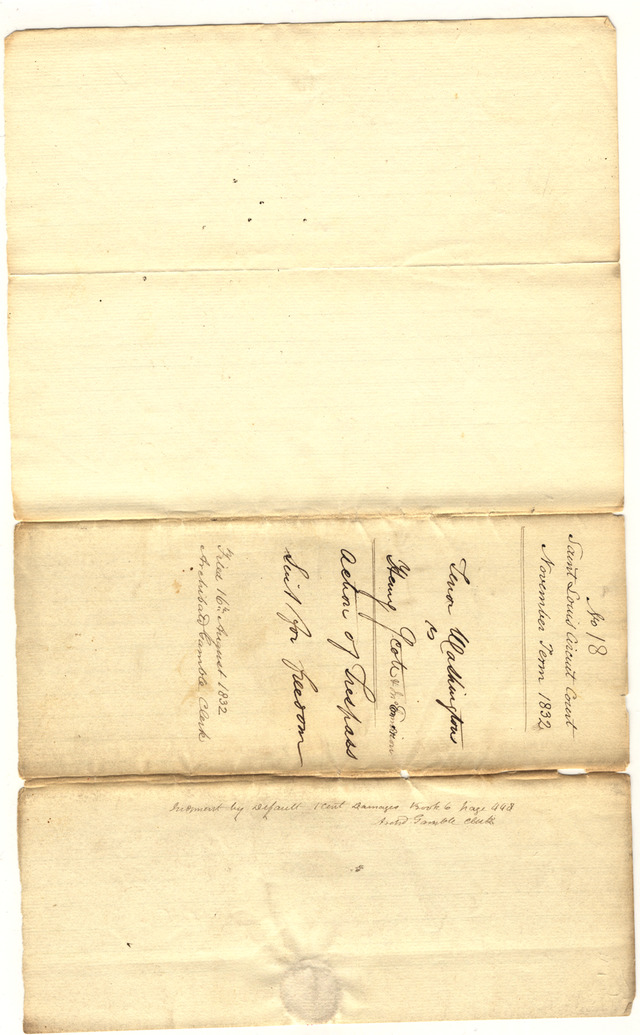 No 18
Saint Louis Circuit Court
November Term 1832
Tenor Washington
vs
Henry Scott &
Action of Trespass
Suit for freedom
Filed 16th August 1832
Archibald Gamble Clerk
Judgment by Default 1 Cent Damages Book 6 page 448
Archd Gamble Clerk